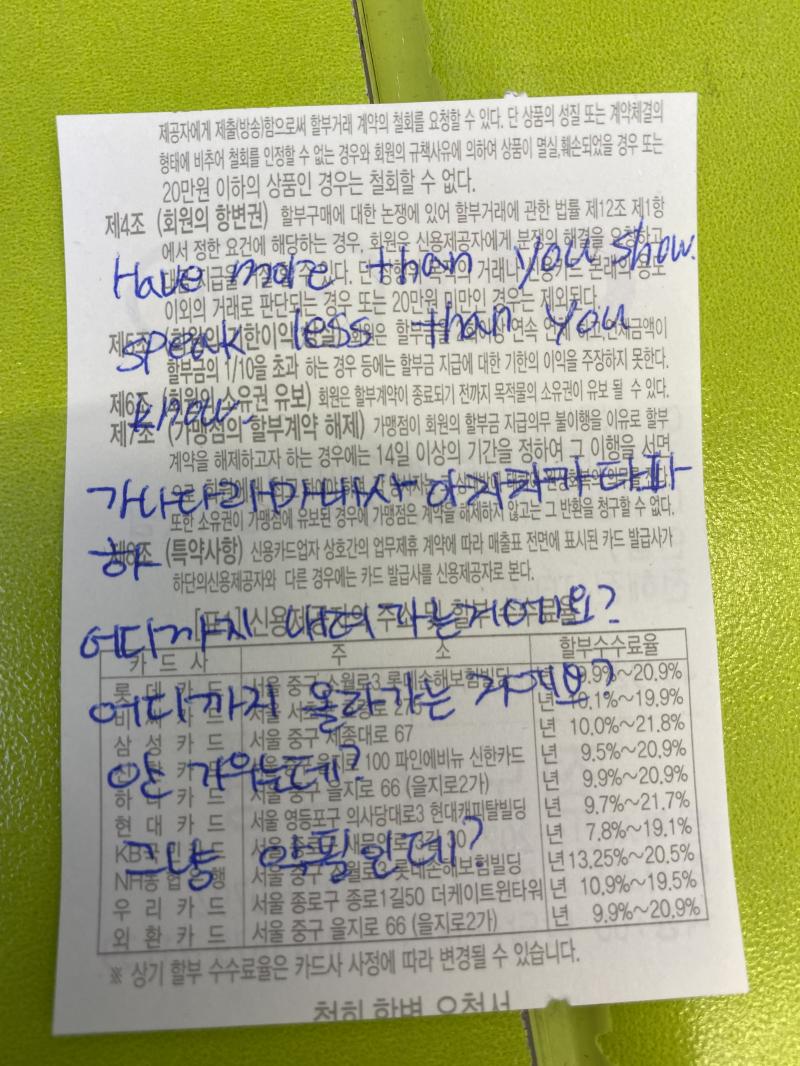 제공자에게 제출(방송)함으로써 할부거래 계약의 철회를 요청할 수 있다. 단 상품의 성질 또는 계약체결의
형태에 비추어 철회를 인정할 수 없는 경우와 회원의 규책사유에 의하여 상품이 멸실,훼손되었을 경우 또는
20만원 이하의 상품인 경우는 철회할 수 없다.
제4조 (회원의 항변권) 할부구매에 대한 논쟁에 있어 할부거래에 관한 법률 제12조 제1항
에서 정한 요건에 해당하는 경우, 회원은 신용제공자에게 분쟁의 해결을 요청하고
Have more than you show.
이외의 거래로 판단되는 경우 또는 20만원 미만인 경우는 제외된다.
speak less than you
할부금의 1/10을 초과 하는 경우 등에는 할부금 지급에 대한 기한의 이익을 주장하지 못한다.
제6조 (회원의 소유권 유보) 회원은 할부계약이 종료되기 전까지 목적물의 소유권이 유보 될 수 있다.
know.
제7조 (가맹점의 할부계약 해제) 가맹점이 회원의 할부금 지급의무 불이행을 이유로 할부
계약을 해제하고자 하는 경우에는 14일 이상의 기간을 정하여 그 이행을 서면
가나다라마바사아자차카타파
또한 소유권이 가맹점에 유보된 경우에 가맹점은 계약을 해제하지 않고는 그 반환을 청구할 수 없다.
하
제8조 (특약사항) 신용카드업자 상호간의 업무제휴 계약에 따라 매출표 전면에 표시된 카드 발급사가
하단의신용제공자와 다른 경우에는 카드 발급사를 신용제공자로 본다.
어디까지 내려가는거에요?
카 드 사 주 소 할부수수료율
롯 데 카 드 서울 중구 소월로3 롯데손해보험빌딩 ~20.9%
어디까지 올라가는 거에요?
년 10.1%~19.9%
삼 성 카 드 서울 중구 세종대로 67 년 10.0%~21.8%
100 파인에비뉴 신한카드 년 9.5%~20.9%
안 가의는데?
하 나 카 드 서울 중구 을지로 66 (을지로2가) 년 9.9%~20.9%
현 대 카 드 서울 영등포구 의사당대로3 현대캐피탈빌딩 년 9.7%~21.7%
년 7.8%~19.1%
그냥 악필인데?
NH농협은행 서울 중구 소월로3 롯데손해보험빌딩 년13.25%~20.5%
우 리 카 드 서울 종로구 종로1길50 더케이트윈타워 년 10.9%~19.5%
외 환 카 드 서울 중구 을지로 66 (을지로2가) 년 9.9%~20.9%
※ 상기 할부 수수료율은 카드사 사정에 따라 변경될 수 있습니다.
철회 항변 요청서